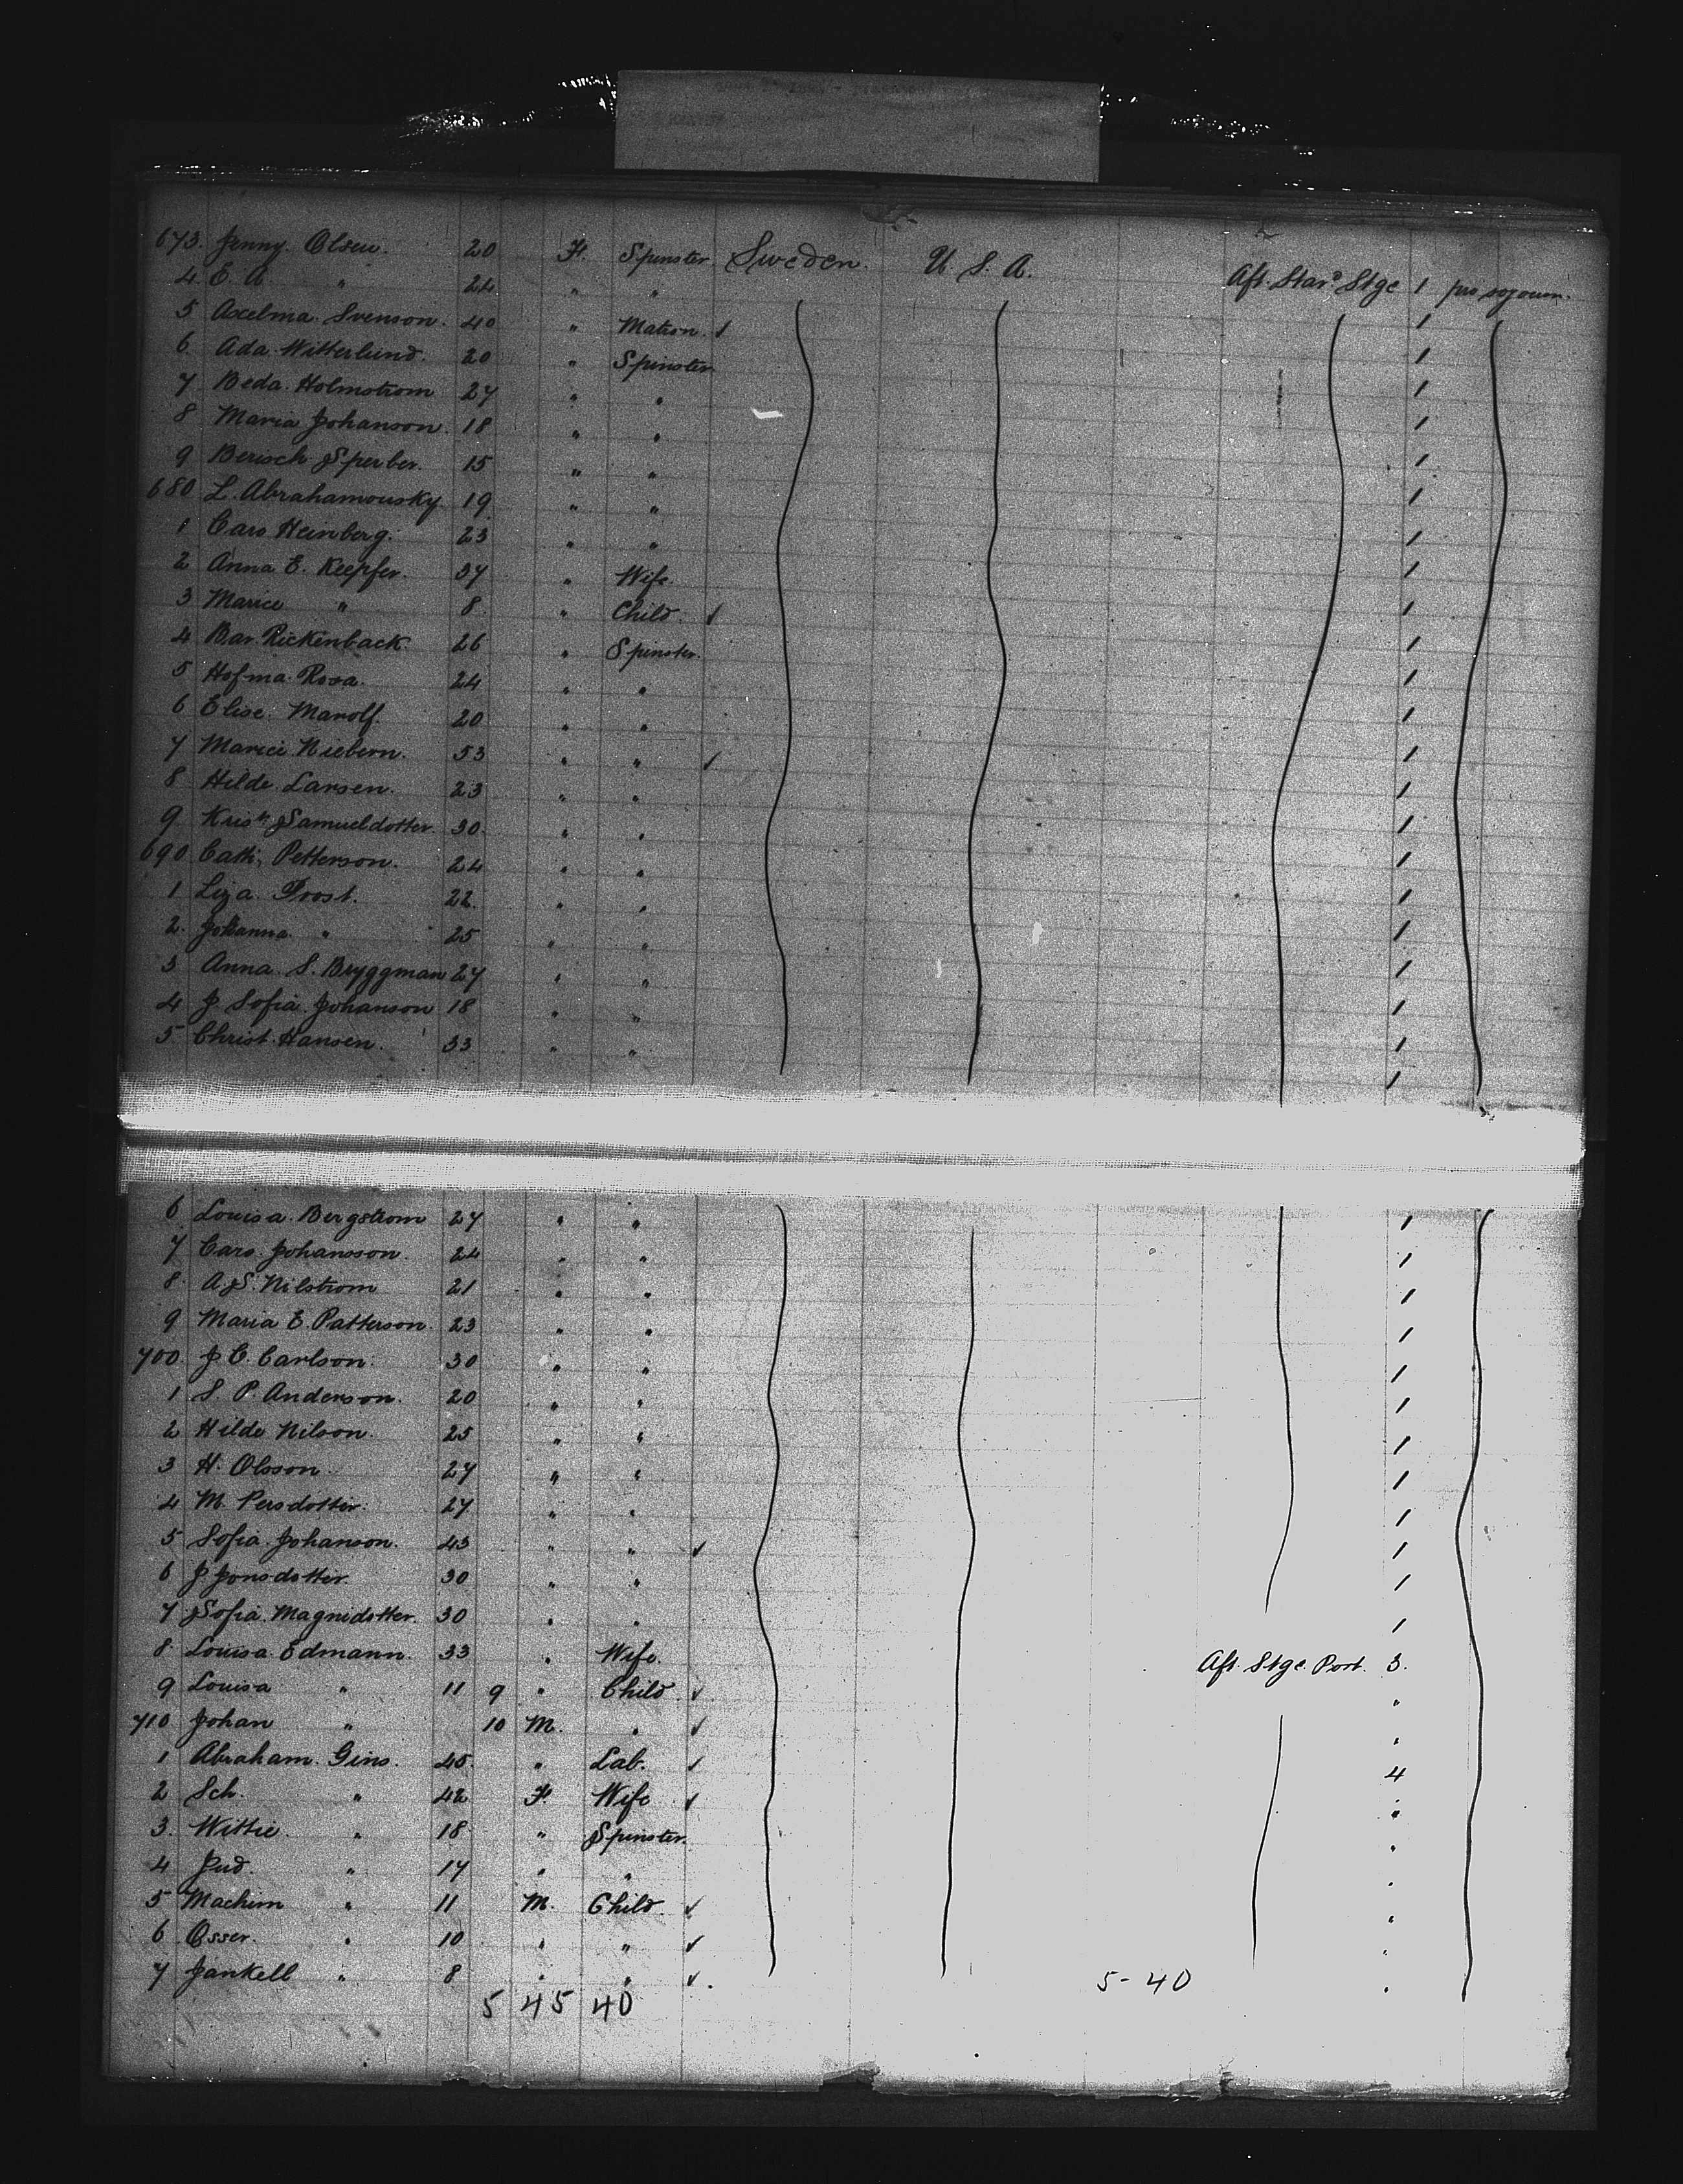 673. Jenny Olsen. 20 F. Spinster Sweden. U. S. A. Aft. Star.d Stge 1 pro sojourn.
4 E. A. " 24 " " 1
5 Axelma Svenson. 40 " Matron. ✓ 1
6. Ada Witterlund. 20 " Spinster 1
7 Beda Holmstrom 27 " " 1
8 Maria Johanson. 18 " " 1
9 Berisch Sperber. 15 " " 1
680 L. Abrahamousky 19 " " 1
1 Caro Heinberg. 23 " " 1
2 Anna E. Keepfer. 37 " Wife. 1
3 Marice " 8. " Child. ✓ 1
4 Bar Rickenback. 26 " Spinster. 1
5 Hofma Rosa. 24 " " 1
6 Elise Marolf. 20 " " 1
7 Marici Niebern. 53 " " ✓ 1
8 Hilde Larsen. 23 " " 1
9 Krisn Samueldotter. 30 " " 1
690 Cath. Petterson. 24 " " 1
1 Liza Proost. 22. " " 1
2. Johanna " 25 " " 1
3 Anna S. Bryggman 27 " " 1
4 J. Sofia Johanson 18 " " 1
5 Christ. Hansen. 33 " " 1
6 Louisa Bergstrom 27 " " 1
7 Caro. Johansson. 24 " " 1
8. A. S. Nilstrom 21 " " 1
9 Maria E. Patterson. 23 " " 1
700. J C. Carlson. 30 " " 1
1 S. P. Anderson. 20 " " 1
2 Hilda Nilson. 25 " " 1
3 H. Olsson. 27 " " 1
4 M. Persdotter. 27 " " 1
5 Sofia Johanson. 43 " " ✓ 1
6 J Jonsdotter. 30 " " 1
7 Sofia Magnidotter. 30 " " 1
8 Louisa Edmann. 33 " Wife. Aft. Stge. Port. 3.
9 Louisa " 11 9 " Child. ✓ "
710 Johan " 10 M. " ✓ "
1 Abraham Gins. 45. " Lab. ✓ 4
2 Sch. " 42 F. Wife ✓ "
3. Wittie. " 18 " Spinster. "
4 Jud. " 17 " " "
5 Machim " 11 M. Child. ✓ "
6 Osser. " 10 " " ✓ "
7 Jankell " 8 " " ✓. "
5 45 40 5-40